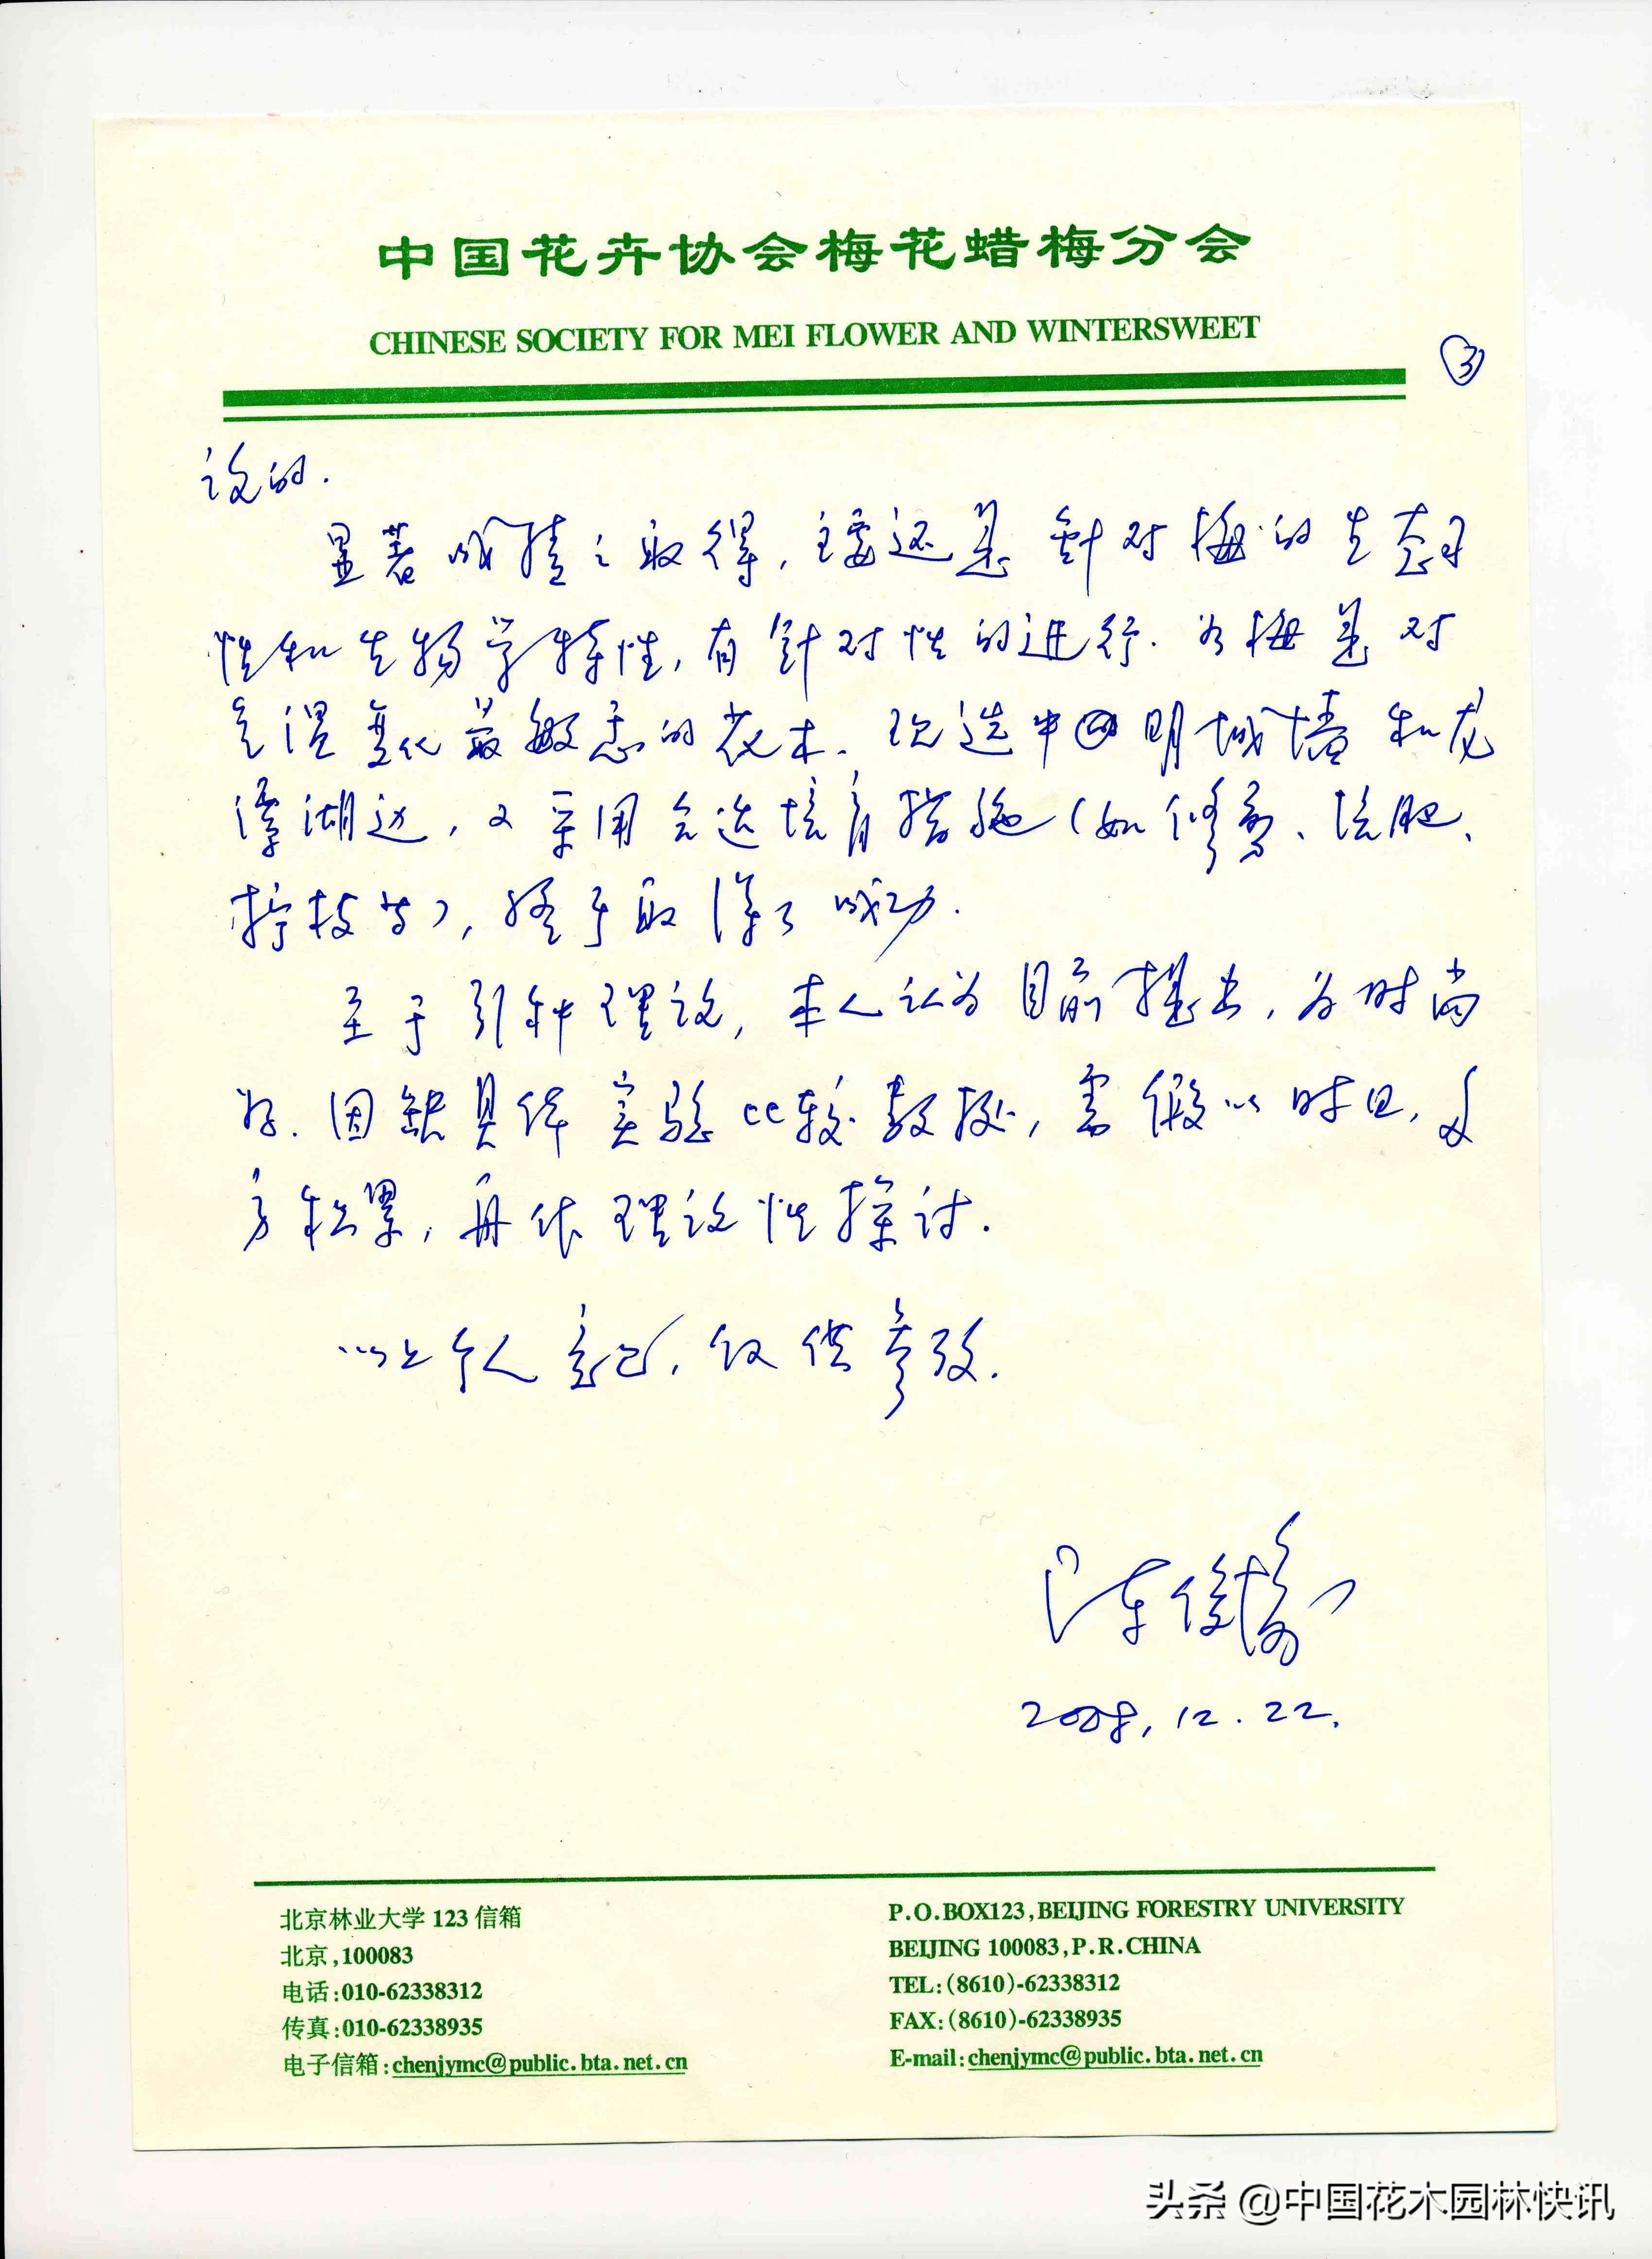 中国花卉协会梅花蜡梅分会
CHINESE SOCIETY FOR MEI FLOWER AND WINTERSWEET
③
设的.
显著成绩之取得,主要还是针对梅的生态习
性和生物学特性,有针对性的进行.为梅是对
气温变化最敏感的花木.现选中明城墙和龙
潭湖边,又采用合适培育措施(如修剪、施肥、
拧枝等),终于取得了成功.
至于引种理论,本人认为目前提出,为时尚
早.因缺具体实验比较数据,需假以时日,多
方积累,再作理论性探讨.
以上个人意见,仅供参考.
陈俊愉
2008.12.22.
北京林业大学 123 信箱
北京,100083
电话:010-62338312
传真:010-62338935
电子信箱:chenjymc@public.bta.net.cn
P.O.BOX123,BEIJING FORESTRY UNIVERSITY
BEIJING 100083,P.R.CHINA
TEL:(8610)-62338312
FAX:(8610)-62338935
E-mail:chenjymc@public.bta.net.cn
头条 @中国花木园林快讯